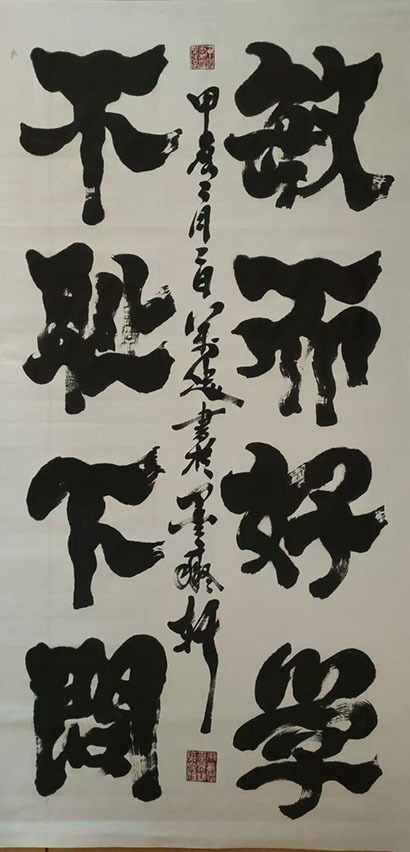 敏而好学
不耻下问
甲辰二月二日
书于墨